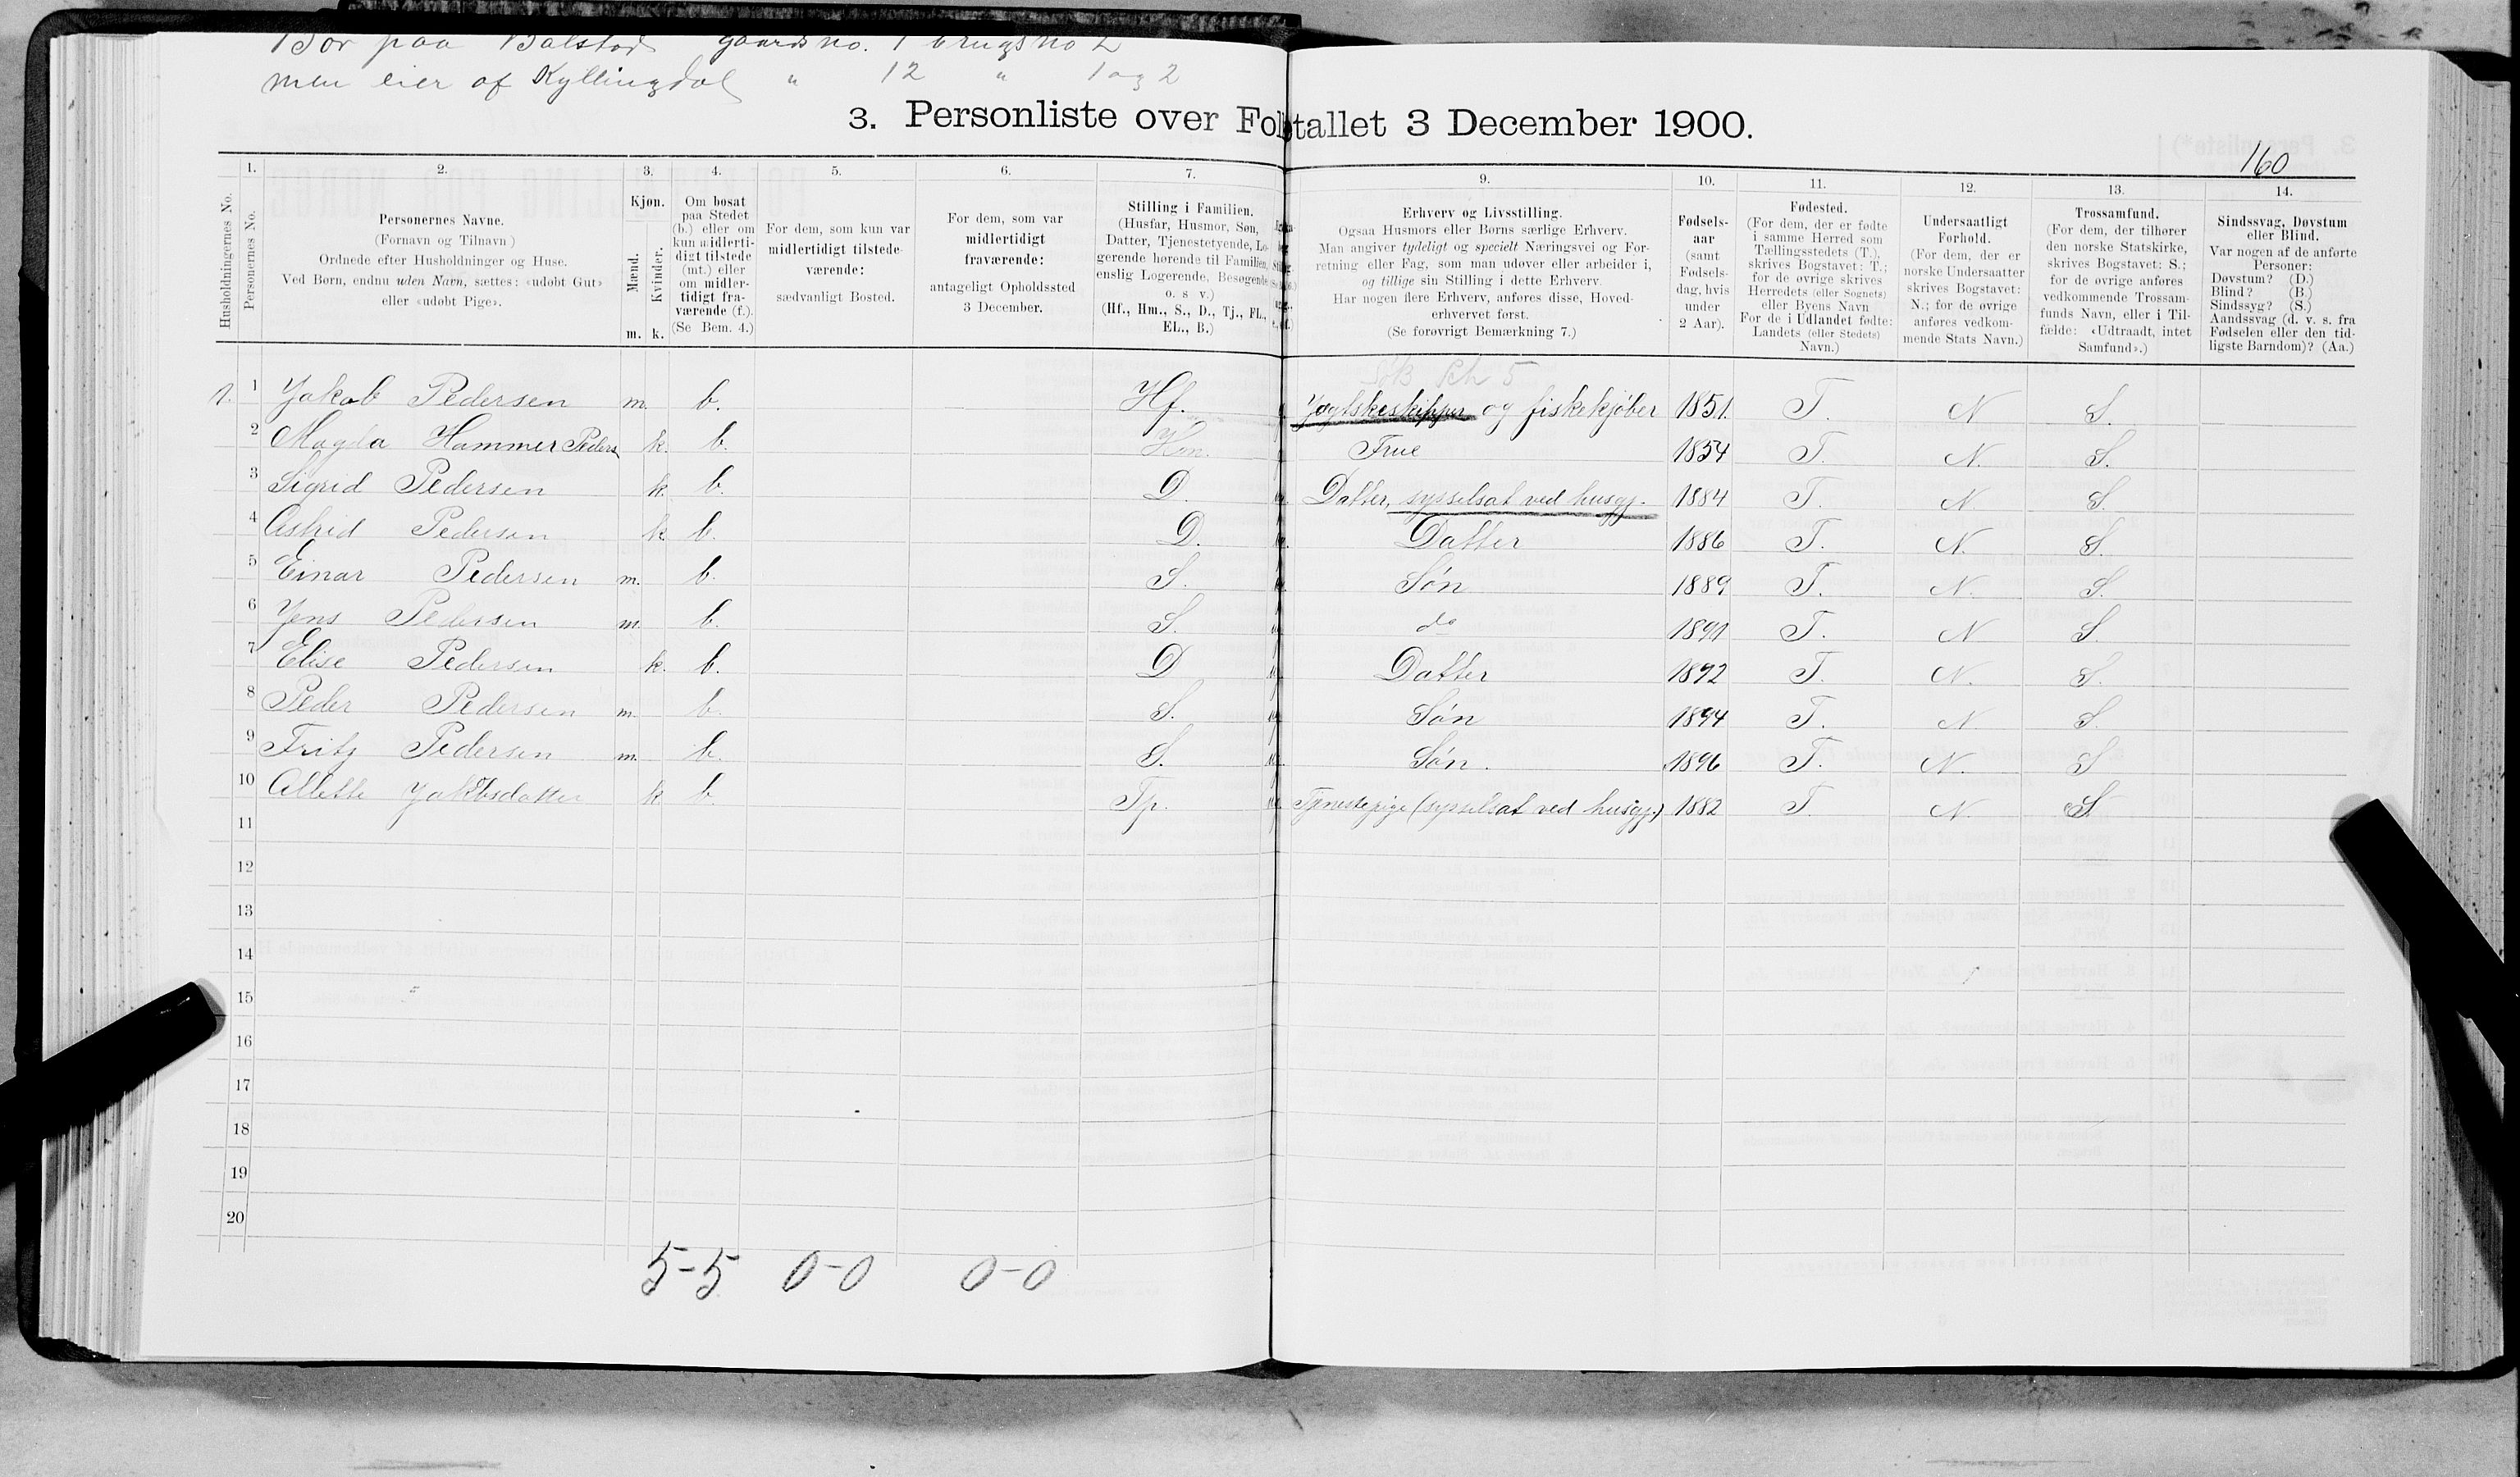 Bor paa Balstad gaardsno. 1 brugsno 2
men eier af Kyllingdal " 12 " 1 og 2
3. Personliste over Folketallet 3 December 1900.
160
1. 2. 3. 4. 5. 6. 7. 9. 10. 11. 12. 13. 14.
Husholdningernes No.
Personernes No.
Personernes Navne.
(Fornavn og Tilnavn)
Ordnede efter Husholdninger og Huse.
Ved Børn, endnu uden Navn, sættes: «udøbt Gut»
eller «udøbt Pige».
Kjøn.
Mænd.
Kvinder.
m. k.
Om bosat
paa Stedet
(b.) eller om
kun midlerti-
digt tilstede
(mt.) eller
om midler-
tidigt fra-
værende (f.).
(Se Bem. 4.)
For dem, som kun var
midlertidigt tilstede-
værende:
sædvanligt Bosted.
For dem, som var
midlertidigt
fraværende:
antageligt Opholdssted
3 December.
Stilling i Familien.
(Husfar, Husmor, Søn,
Datter, Tjenestetyende, Lo-
gerende hørende til Familien,
enslig Logerende, Besøgende
o. s v.)
(Hf., Hm., S., D., Tj., FL.,
EL., B.)
Erhverv og Livsstilling.
Ogsaa Husmors eller Børns særlige Erhverv.
Man angiver tydeligt og specielt Næringsvei og For-
retning eller Fag, som man udøver eller arbeider i,
og tillige sin Stilling i dette Erhverv.
Har nogen flere Erhverv, anføres disse, Hoved-
erhvervet først.
(Se forøvrigt Bemærkning 7.)
Fødsels-
aar
(samt
Fødsels-
dag, hvis
under
2 Aar).
Fødested.
(For dem, der er fødte
i samme Herred som
Tællingsstedets (T.),
skrives Bogstavet: T.;
for de øvrige skrives
Herredets (eller Sognets)
eller Byens Navn
For de i Udlandet fødte:
Landets (eller Stedets)
Navn.)
Undersaatligt
Forhold.
(For dem, der er
norske Undersaatter
skrives Bogstavet:
N.; for de øvrige
anføres vedkom-
mende Stats Navn.)
Trossamfund.
(For dem, der tilhører
den norske Statskirke,
skrives Bogstavet: S.;
for de øvrige anføres
vedkommende Trossam-
funds Navn, eller i Til-
fælde: «Udtraadt, intet
Samfund».)
Sindssvag, Døvstum
eller Blind.
Var nogen af de anførte
Personer:
Døvstum? (D.)
Blind? (B.)
Sindssyg? (S.)
Aandssvag (d. v. s. fra
Fødselen eller den tid-
ligste Barndom)? (Aa.)
1. 1 Jakob Pedersen m. b. Hf. Jagtskeskipper og fiskekjøber 1851. T. N S.
2 Magda Hammer Peders k. b. Hm. Frue 1854 T. N. S.
3 Sigrid Pedersen k. b. D. Datter, sysselsat ved husgj. 1884 T. N. S.
4 Astrid Pedersen k b. D. Datter 1886 T. N. S.
5 Einar Pedersen m. b. S. Søn 1889 T. N. S.
6 Jens Pedersen m. b. S. do 1891 T. N S.
7 Elise Pedersen k. b. D Datter 1892 T. N. S.
8 Peder Pedersen m. b. S. Søn 1894 T. N S.
9 Fritz Pedersen m. b. S. Søn. 1896 T. N. S
10 Allette Jakobsdatter k b. Tp. Tjenestepige (sysselsat ved husgj.) 1882 T. N. S.
11
12
13
14
15
16
17
18
19
20
5-5 0-0 0-0